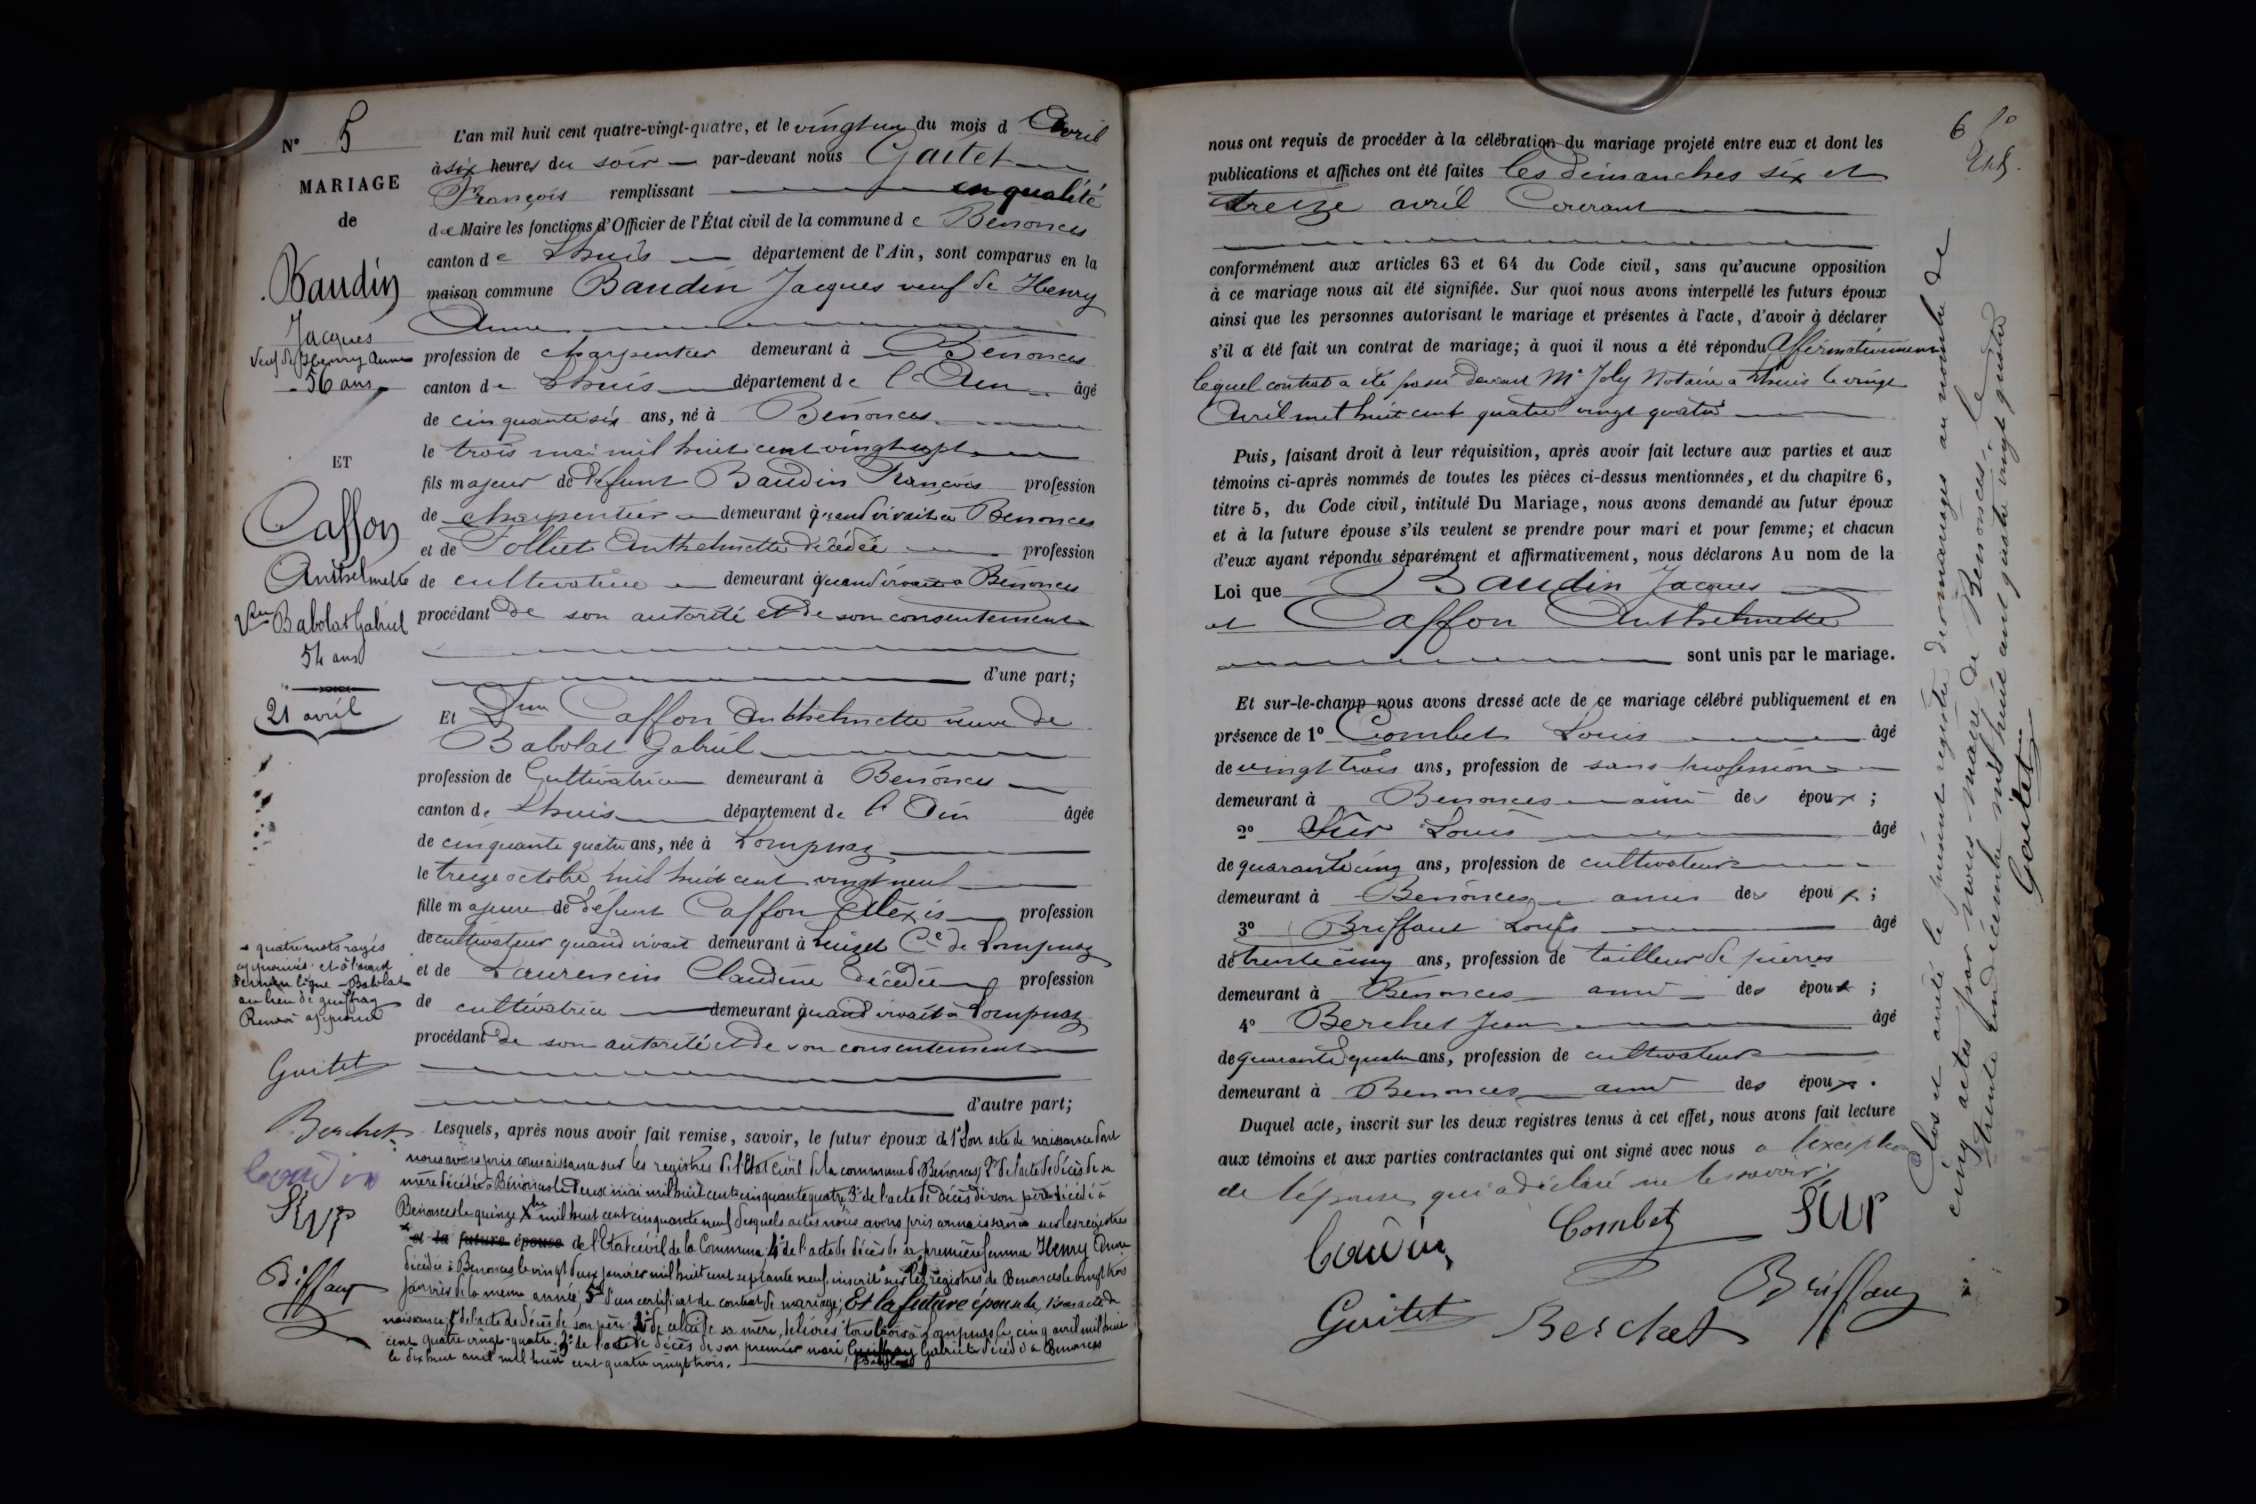 N° 5
MARIAGE
de
Baudin
Jacques
Veuf de Henry Anne
56 ans
ET
Caffon
Anthelmette
Vve Babolat Gabriel
54 ans
21 avril
quatre mots rayés
approuvés et à l'avant
dernière ligne - Babolat
au lieu de guiffray
Renvoi approuvé
Guitet
Berchet
baudin
SUR
Briffaut
L'an mil huit cent quatre-vingt-quatre, et le vingt un du mois d Avril
à six heures du soir par-devant nous Guitet
François remplissant en qualité
de Maire les fonctions d'Officier de l'État civil de la commune de Benonces
canton de Lhuis département de l'Ain, sont comparus en la
maison commune Baudin Jacques veuf de Henry
Anne
profession de charpentier demeurant à Benonces
canton de Lhuis département de l'Ain âgé
de cinquante six ans, né à Benonces
le trois mai mil huit cent vingt sept
fils majeur de défunt Baudin François profession
de charpentier demeurant quand vivait à Benonces
et de Folliet Anthelmette décédée profession
de cultivatrice demeurant quand vivait à Benonces
procédant de son autorité et de son consentement
d'une part;
Et Dme Caffon Anthelmette veuve de
Babolat Gabriel
profession de Cultivatrice demeurant à Benonces
canton de Lhuis département de l'Ain âgée
de cinquante quatre ans, née à Lompnaz
le treize octobre mil huit cent vingt neuf
fille majeure de défunt Caffon Alexis profession
de cultivateur quand vivait demeurant à Luizet Cne de Lompnaz
et de Laurencin Claudine décédée profession
de cultivatrice demeurant quand vivait à Lompnaz
procédant de son autorité et de son consentement
d'autre part;
Lesquels, après nous avoir fait remise, savoir, le futur époux de 1° Son acte de naissance dont
nous avons pris connaissance sur les registres de l'Etat civil de la commune de Benonces, 2° de l'acte de décès de sa
mère décédée à Bénonces le deux mai mil huit cent cinquante quatre, 3° de l'acte de décès de son père décédé à
Benonces le quinze Xbre mil huit cent cinquante neuf desquels actes nous avons pris connaissance sur les registres
et la future épouse de l'Etat civil de la Commune 4° de l'acte de décès de sa première femme Henry Anne
décédée à Benonces le vingt deux janvier mil huit cent septante neuf, inscrit sur les registres de Benonces le vingt trois
janvier de la même année, 5° d'un certificat de contrat de mariage, Et la future épouse de son acte de
naissance, 1° de l'acte de décès de son père 2° de celui de sa mère, délivrés tous trois à Lompnaz le cinq avril mil huit
cent quatre vingt-quatre, 3° de l'acte de décès de son premier mari Guiffray Gabriel décédé à Benonces
Babolat
le dix huit avril mil huit cent quatre vingt trois.
6
nous ont requis de procéder à la célébration du mariage projeté entre eux et dont les
publications et affiches ont été faites les dimanches six et
treize avril Courant
conformément aux articles 63 et 64 du Code civil, sans qu'aucune opposition
à ce mariage nous ait été signifiée. Sur quoi nous avons interpellé les futurs époux
ainsi que les personnes autorisant le mariage et présentes à l'acte, d'avoir à déclarer
s'il a été fait un contrat de mariage; à quoi il nous a été répondu Affirmativement
lequel contrat a été passé devant Me Joly Notaire à Lhuis le vingt
Avril mil huit cent quatre vingt quatre
Puis, faisant droit à leur réquisition, après avoir fait lecture aux parties et aux
témoins ci-après nommés de toutes les pièces ci-dessus mentionnées, et du chapitre 6,
titre 5, du Code civil, intitulé Du Mariage, nous avons demandé au futur époux
et à la future épouse s'ils veulent se prendre pour mari et pour femme; et chacun
d'eux ayant répondu séparément et affirmativement, nous déclarons Au nom de la
Loi que Baudin Jacques
et Caffon Anthelmette
sont unis par le mariage.
Et sur-le-champ nous avons dressé acte de ce mariage célébré publiquement et en
présence de 1° Combet Louis âgé
de vingt trois ans, profession de sans profession
demeurant à Benonces ami des époux ;
2° Sur Louis âgé
de quarante cinq ans, profession de cultivateur
demeurant à Benonces ami des époux ;
3° Briffaut Louis âgé
de trente cinq ans, profession de tailleur de pierres
demeurant à Benonces ami des époux ;
4° Berchet Jean âgé
de quarante quatre ans, profession de cultivateur
demeurant à Benonces ami des époux.
Duquel acte, inscrit sur les deux registres tenus à cet effet, nous avons fait lecture
aux témoins et aux parties contractantes qui ont signé avec nous à l'exception
de l'épouse qui a déclaré ne le savoir
baudin
Combet
SUR
Guitet
Berchet
Briffaut
Clos et arrêté le présent registre de mariages au nombre de
cinq actes par nous maire de Benonces, le
trente un décembre mil huit cent quatre vingt quatre
Guitet